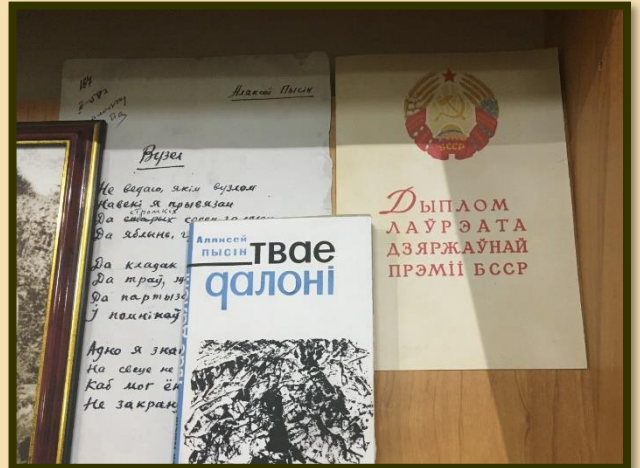 184
Аляксей Пысін
Вузел
Не ведаю, якім вузлом
Навекі я прывязан
стромкіх
Да старых сосен за
Да яблынь,
Да кладак
Да траў,
Да партыза
І помнікаў
Адно я зна
На свеце не
Каб мог ён
Не закран
Аляксей
ПЫСІН
твае
далоні
БССР
Дыплом
лаўрэата
дзяржаўнай
прэміі БССР